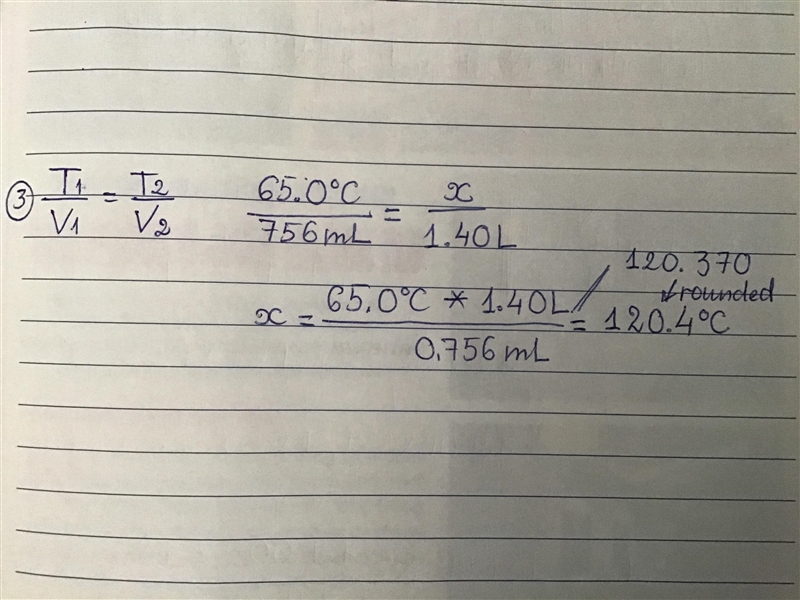 ③ T1/V1 = T2/V2 65.0°C/756mL = x/1.40L
120.370
rounded
x = 65.0°C * 1.40L/0.756mL = 120.4°C